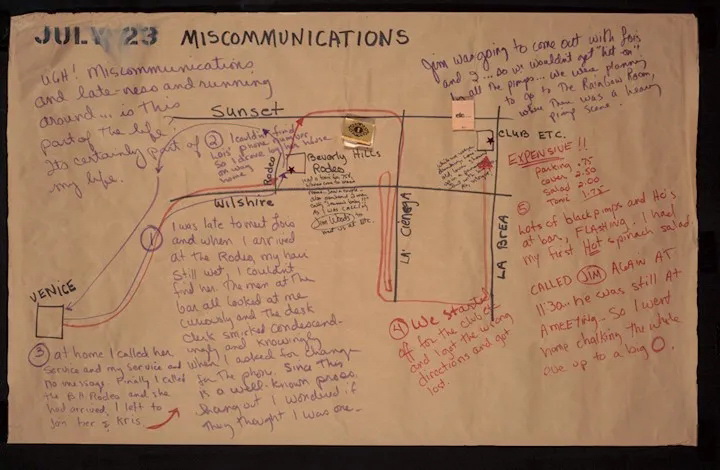 JULY 23 MISCOMMUNICATIONS
UGH! Miscommunications
and lateness and running
around... is this
part of the life?
It's certainly part of
my life.
Jim was going to come out with Lois
and I... so we wouldn't get "hit on"
by all the pimps... we were planning
to go to The Rainbow Room,
where there was a heavy
pimp scene.
Sunset
② I couldn't find
Lois' phone number
So I drove by her house
on way
home
Rodeo
Beverly Hills
Rodeo
Jim Woods to
meet us at etc.
Wilshire
LA' Cienega
LA BREA
etc.
CLUB ETC.
EXPENSIVE!!
parking .75
cover 2.50
salad 2.00
Tonic 1.75
⑤
Lots of black pimps and Ho's
at bar, FLASHING. I had
my first Hot spinach salad.
CALLED JIM AGAIN AT
11:30... he was still At
A MEETING... So I went
home chalking the whole
eve up to a big O.
VENICE
① I was late to meet Lois
and when I arrived
at the Rodeo, my hair
still wet, I couldn't
find her. The men at the
bar all looked at me
curiously and the desk
clerk smirked condescend-
ingly and knowingly
when I asked for change
for the phone. Since this
is a well-known pross.
hang out I wondered if
they thought I was one-
③ at home I called her
service and my service and
no message. Finally I called
the B.H. Rodeo and she
had arrived, I left to
join her & Kris
④ We started
off for the club etc
and I got the wrong
directions and got
lost.